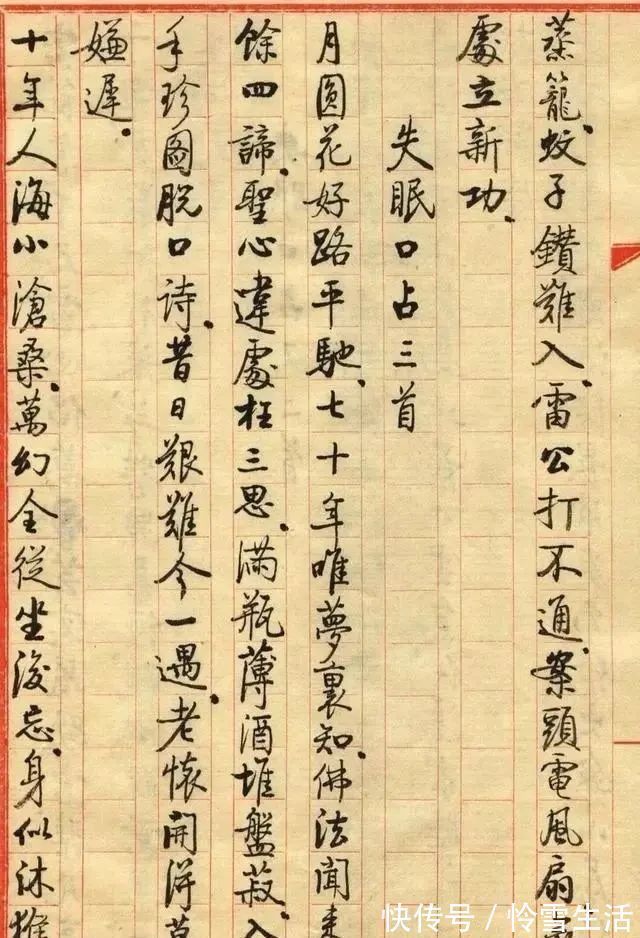 蒸籠、蚊子鑽難入、雷公打不通、案頭電風扇
處立新功、
失眠口占三首
月圓花好路平馳、七十年唯夢裏知、佛法聞來
餘四諦、聖心違處枉三思、滿瓶薄酒堆盤菽、入
手珍圖脫口詩、昔日艱難今一遇、老懷開得莫
嫌遲、
十年人海小滄桑、萬幻全從坐後忘、身似沐猴
快传号/怜雪生活